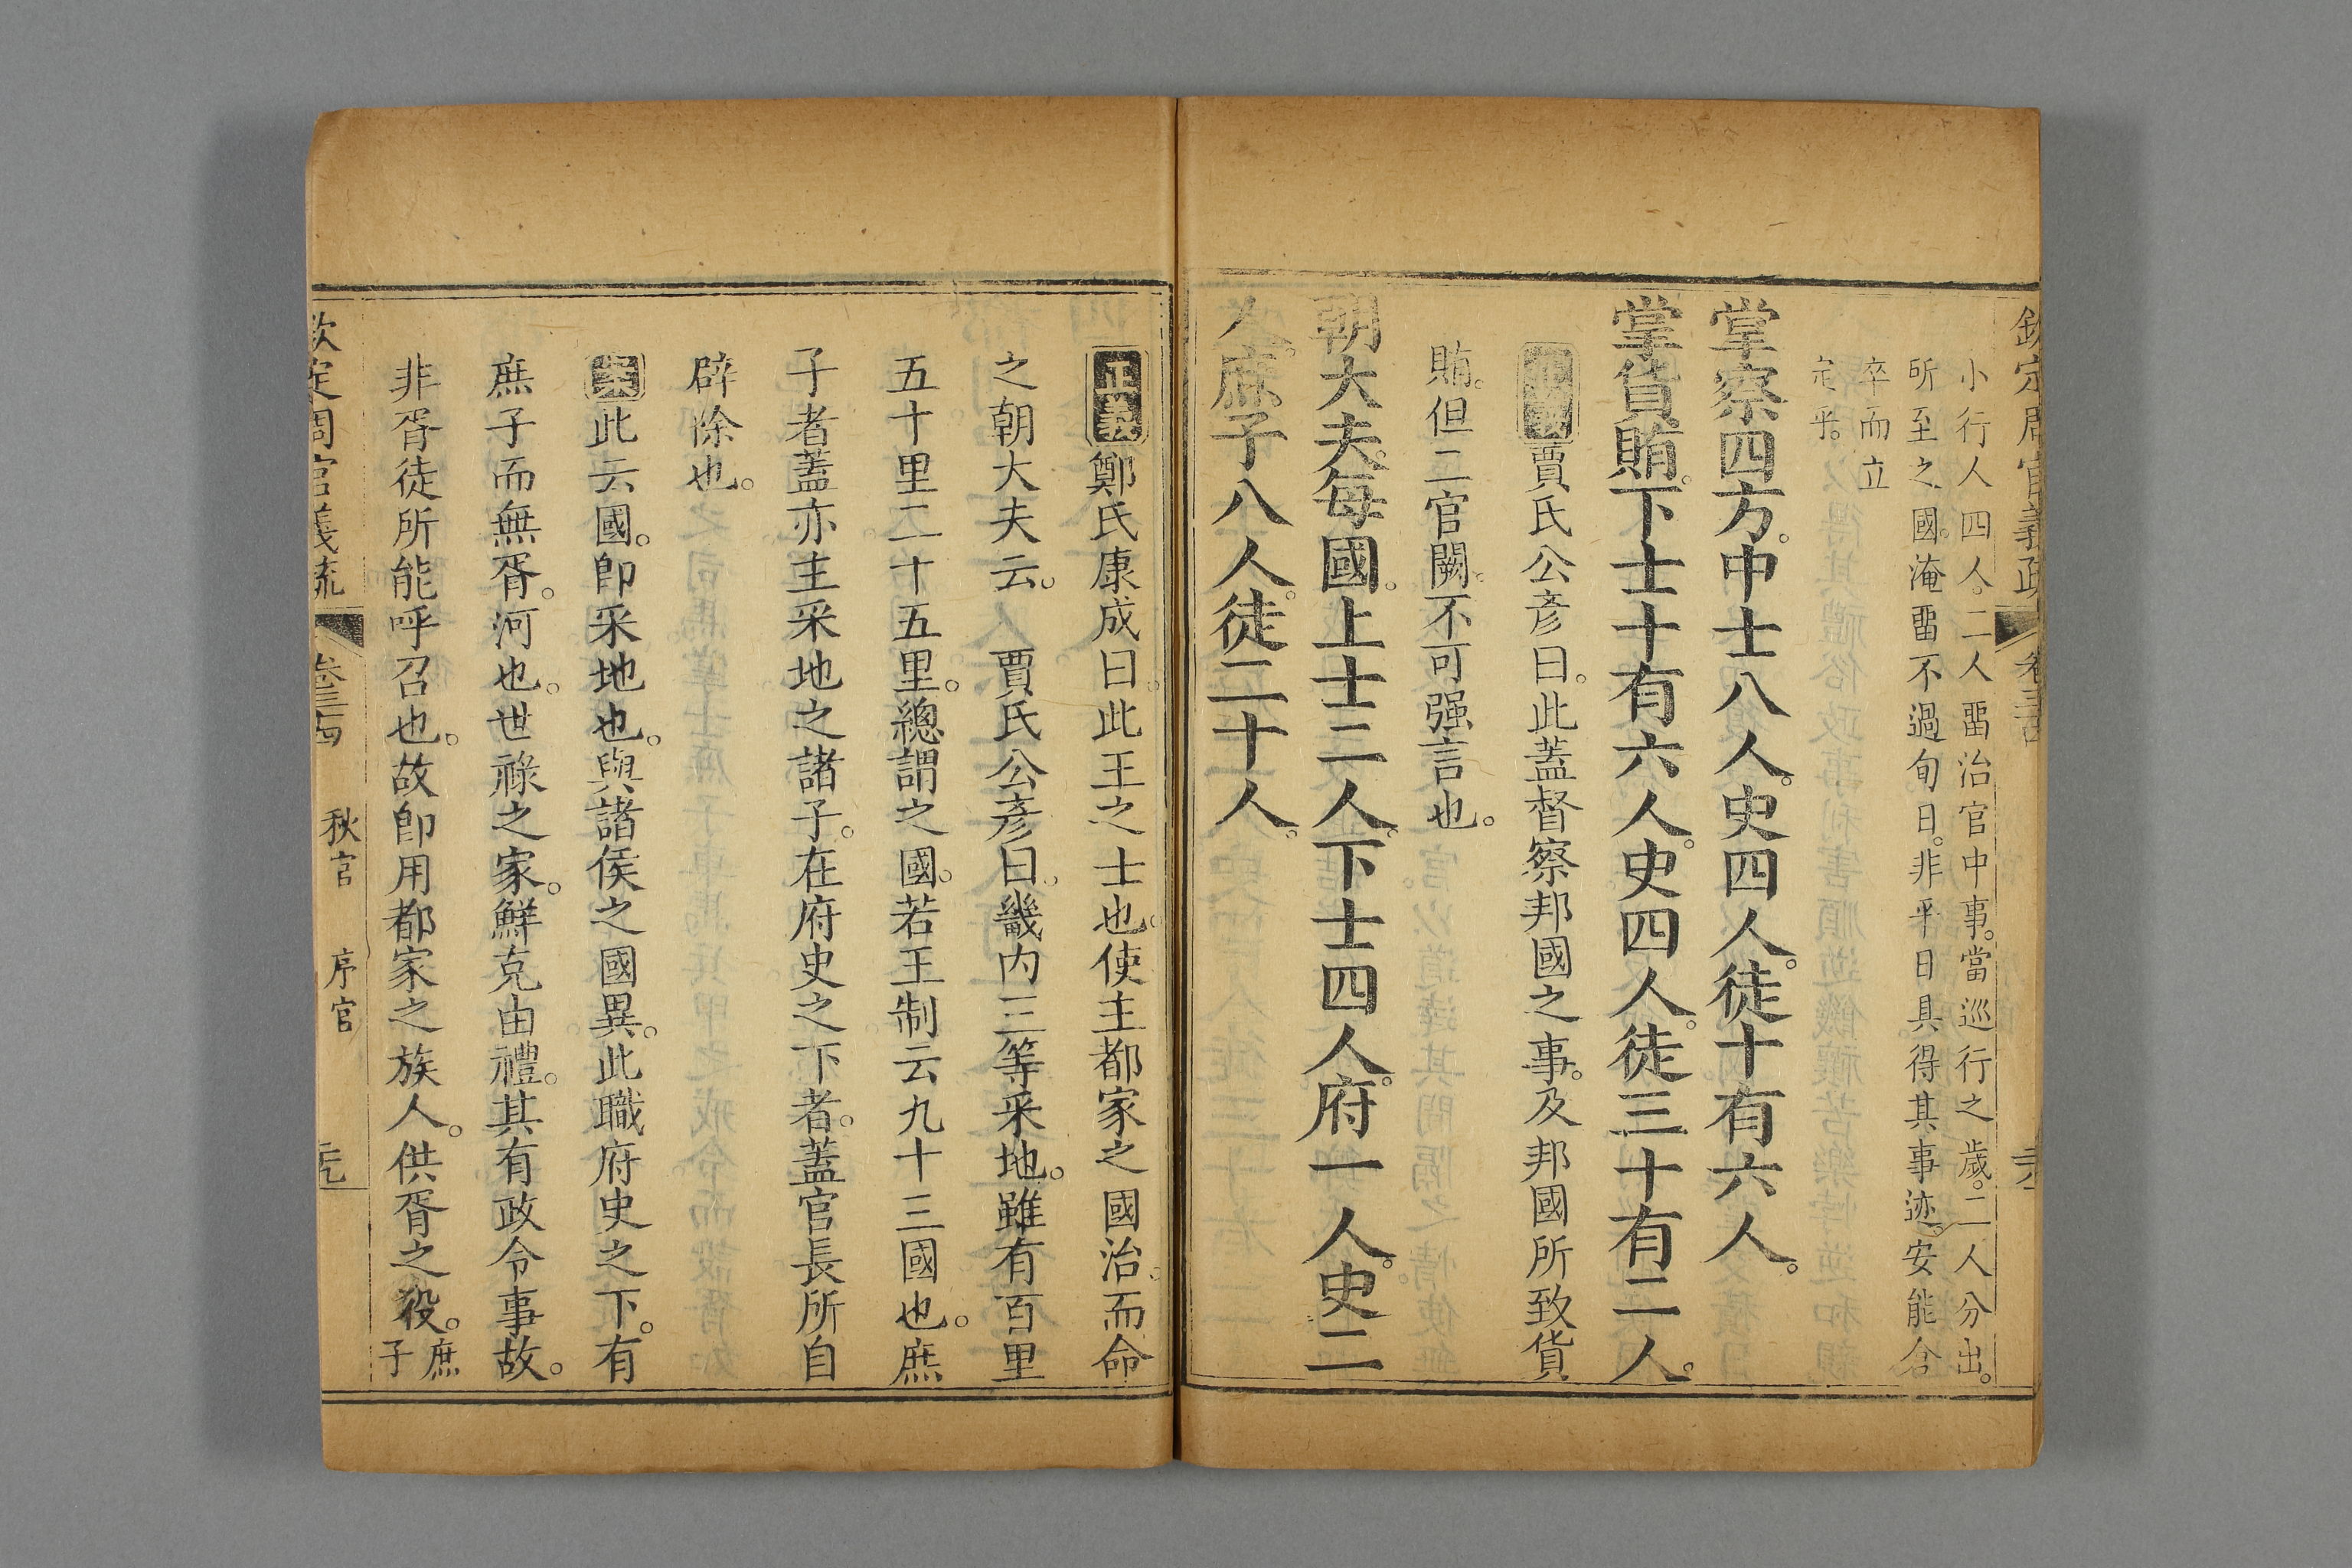 欽定周官義疏 卷三十四
小行人四人。二人畱治官中事。當巡行之歲。二人分出。
所至之國。淹畱不過旬日。非平日具得其事迹。安能倉
卒而立
定乎。
掌察四方。中士八人。史四人。徒十有六人。
掌貨賄。下士十有六人。史四人。徒三十有二人。
賈氏公彥曰。此蓋督察邦國之事。及邦國所致貨
賄。但二官闕。不可强言也。
朝大夫。每國。上士二人。下士四人。府一人。史二
人。庶子八人。徒二十人。
正義鄭氏康成曰。此王之士也。使主都家之國治。而命
之朝大夫云。 賈氏公彥曰。畿内三等采地。雖有百里
五十里二十五里。總謂之國。若王制云九十三國也。庶
子者蓋亦主采地之諸子。在府史之下者。蓋官長所自
辟除也。
此云國。卽采地也。與諸侯之國異。此職府史之下。有
庶子而無胥。河也。世祿之家。鮮克由禮。其有政令事故。
非胥徒所能呼召也。故卽用都家之族人。供胥之役。庶
子
欽定周官義疏 卷三十四 秋官 序官